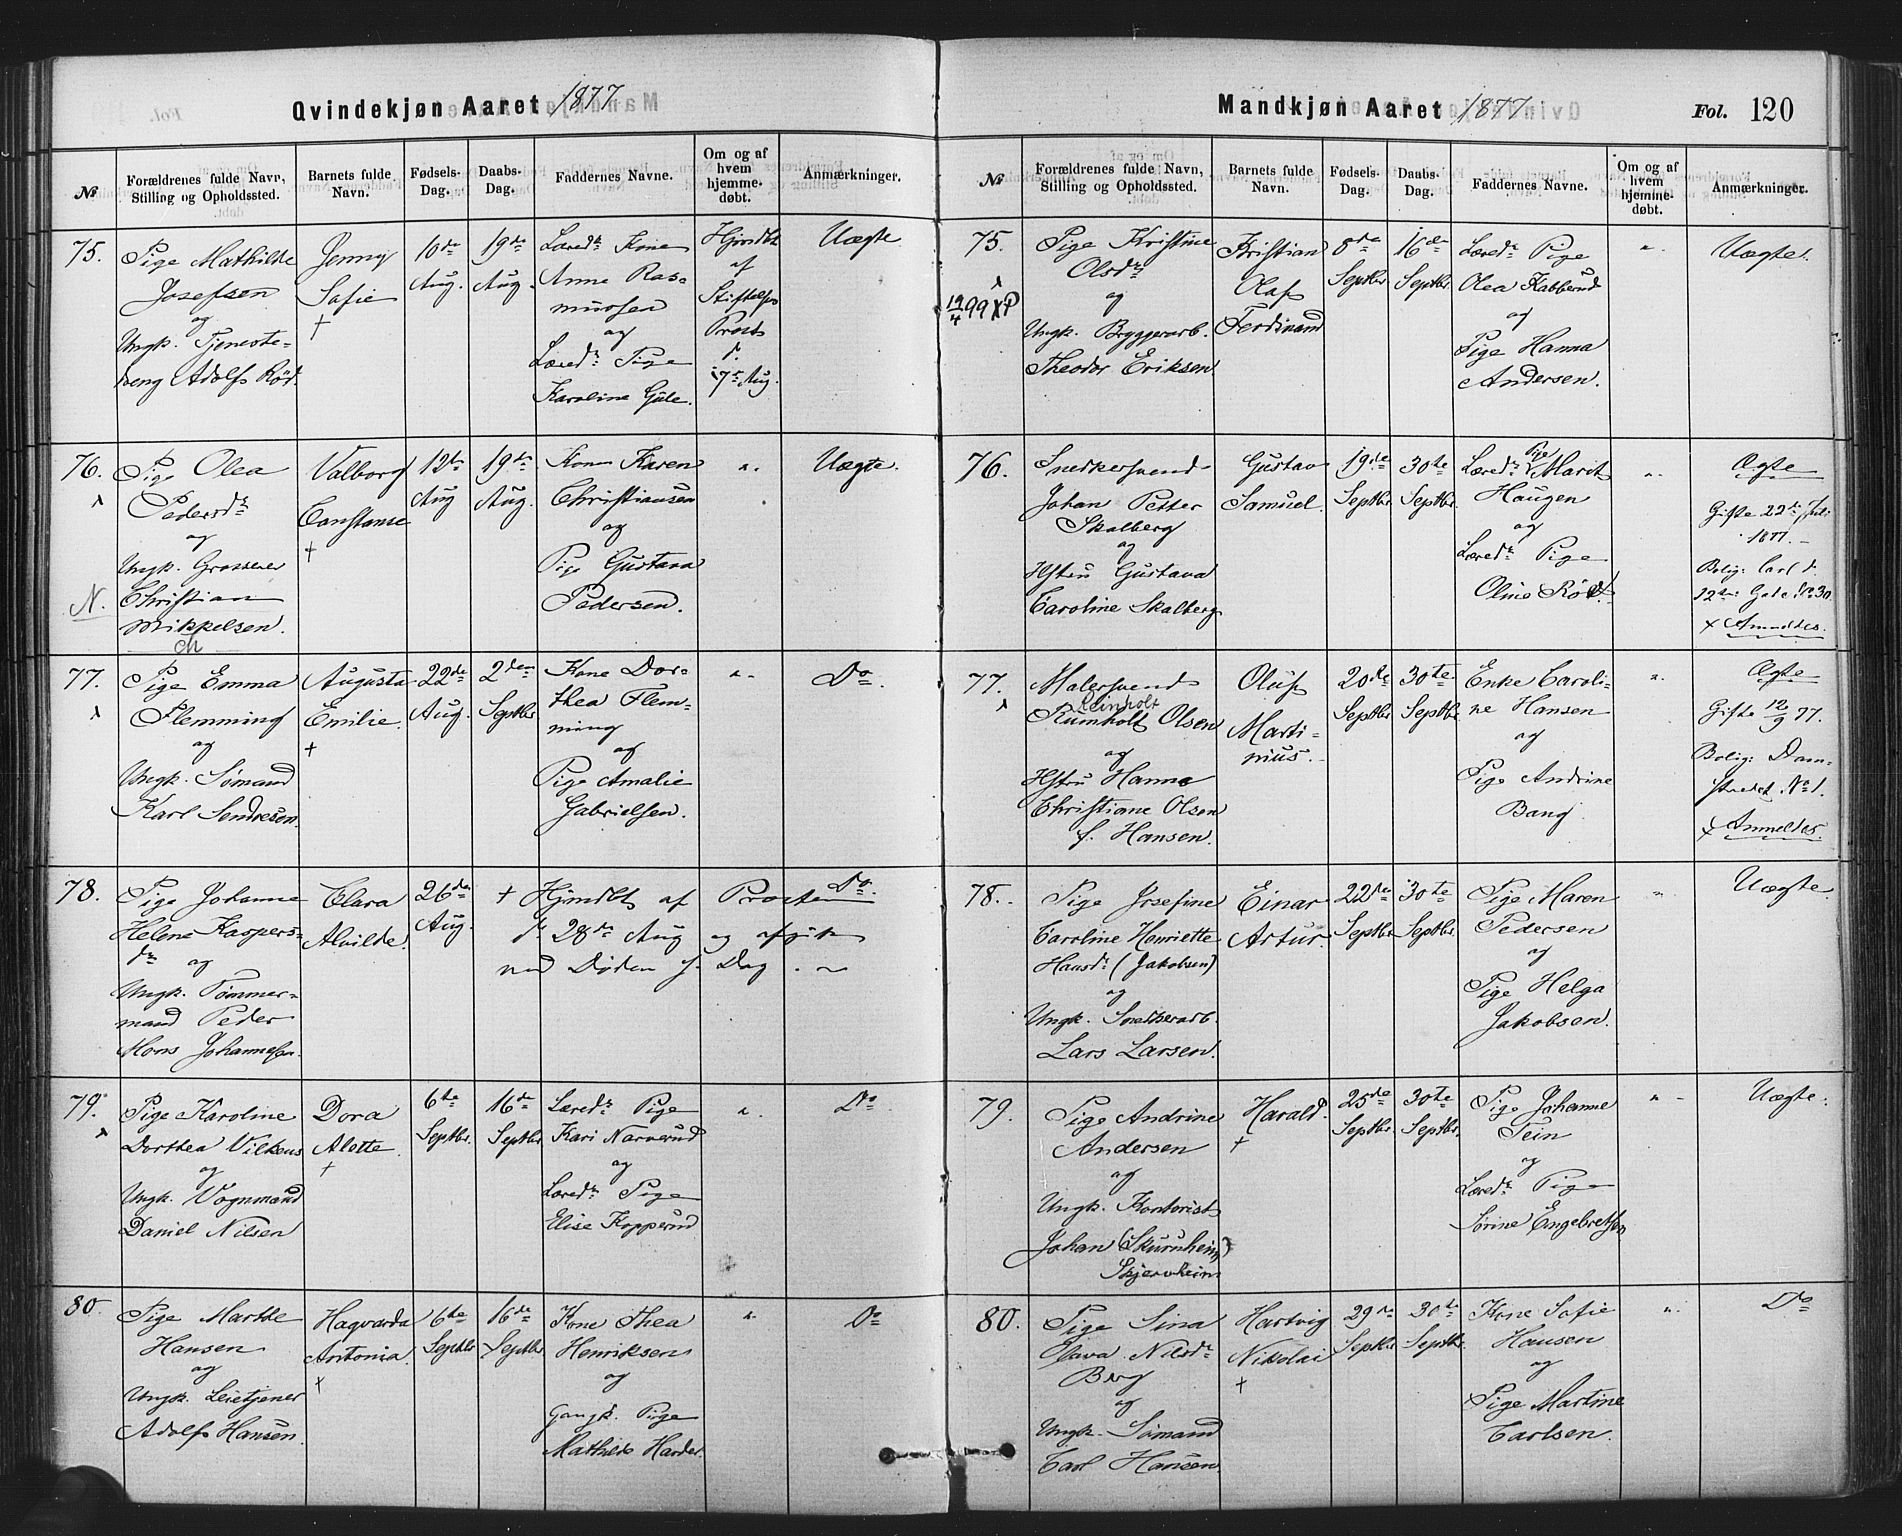 Qvindekjøn Aaret 1877
№
Forældrenes fulde Navn,
Stilling og Opholdssted.
Barnets fulde
Navn.
Fødsels-
Dag.
Daabs-
Dag.
Faddernes Navne.
Om og af
hvem
hjemme-
døbt.
Anmærkninger.
75.
Pige Mathilde
Josefsen
og
Ungk. Tjeneste-
dreng Adolf Rød.
Jenny
Sofie
†
10de
Aug.
19de
Aug.
Læredr Kone
Anne Ras-
mussen
og
Læredr Pige
Karoline Gule.
Hjmdbt
af
Stiftelsens
Prest
d.
17de Aug.
Uægte
76.
N.
Pige Olea
Pedersdr
og
Ungk. Grosserer
Christian
Mikkelsen.
Valborg
Constanse
†
12te
Aug
19de
Aug.
Kone Karen
Christiansen
og
Pige Gustava
Pedersen.
"
Uægte.
77.
Pige Emma
Flemming
og
Ungk. Sømand
Karl Sendresen.
Augusta
Emilie.
†
22de
Aug.
2den
Septbr
Kone Dor-
thea Flem-
ming
og
Pige Amalie
Gabrielsen.
"
Do.
78.
Pige Johanne
Helene Kaspers-
dr og
Ungk. Tømmer-
mand Peder
Mons Johannesen.
Clara
Alvilde.
26de
Aug.
† Hjmdbt af Presten
d. 28de Aug og afgik
ved Døden s. Dag.
Do.
79.
Pige Karoline
Dorthea Vilkens
og
Ungk. Vognmand
Daniel Nilsen
Dora
Alette.
†
6te
Septbr.
16de
Septbr.
Læredr Pige
Kari Narverud
og
Læredr Pige
Elise Kopperud
"
Do
80.
Pige Marthe
Hansen
og
Ungk. Leietjener
Adolf Hansen.
Hagvarda
Antonia.
†
6te
Septbr
16de
Septbr.
Kone Thea
Henriksen
og
Gangk. Pige
Mathilde Harder.
"
Do
Mandkjøn Aaret 1877
Fol. 120
№
Forældrenes fulde Navn,
Stilling og Opholdssted.
Barnets fulde
Navn.
Fødsels-
Dag.
Daabs-
Dag.
Faddernes Navne.
Om og af
hvem
hjemme-
døbt.
Anmærkninger.
75.
19/4 99
Pige Kristine
Olsdr
og
Ungk. Bryggerarb.
Theodor Eriksen.
Kristian
Olaf
Ferdinand
8de
Septbr
16de
Septbr.
Læredr Pige
Olea Kabberud
og
Pige Hanna
Andersen.
"
Uægte.
76.
Snedkersvend
Johan Petter
Skalberg
og
Hstru Gustava
Caroline Skalberg
Gustav
Samuel.
19de
Septbr.
30te
Septbr.
Læredr Pige Marit
Haugen
og
Læredr Pige
Oline Rød.
"
Ægte
Gifte 22de Juli
1877.
Bolig: Carl d.
12tes Gade No 30
× Anmeldes.
77.
Malersvend
Reinholt
Rumholt Olsen
og
Hstru Hanna
Christiane Olsen
f. Hansen.
Oluf
Marti-
nius.
20de
Septbr
30te
Septbr.
Enke Caroli-
ne Hansen
og
Pige Andrine
Bang
"
Ægte
Gifte 12/9 77.
Bolig: Dam-
strædet No 1.
× Anmeldes.
78.
Pige Josefine
Caroline Henriette
Hansdr (Jakobsen)
og
Ungk. Snedkerarb.
Lars Larsen.
Einar
Artur.
22de
Septbr.
30te
Septbr.
Pige Maren
Pedersen
og
Pige Helga
Jakobsen.
"
Uægte.
79.
Pige Andrine
Andersen
og
Ungk. Kontorist
Johan (Skurnheim)
Skjervheim
Harald.
†
25de
Septbr.
30te
Septbr.
Pige Johanne
Tein
og
Læredr Pige
Sørine Engebretsen
"
Uægte.
80.
Pige Sina
Java Nilsdr
Berg
og
Ungk. Sømand
Carl Hansen.
Hartvig
Nikolai
†
29de
Septbr
30te
Septbr.
Kone Sofie
Hansen
og
Pige Martine
Carlsen.
"
Do